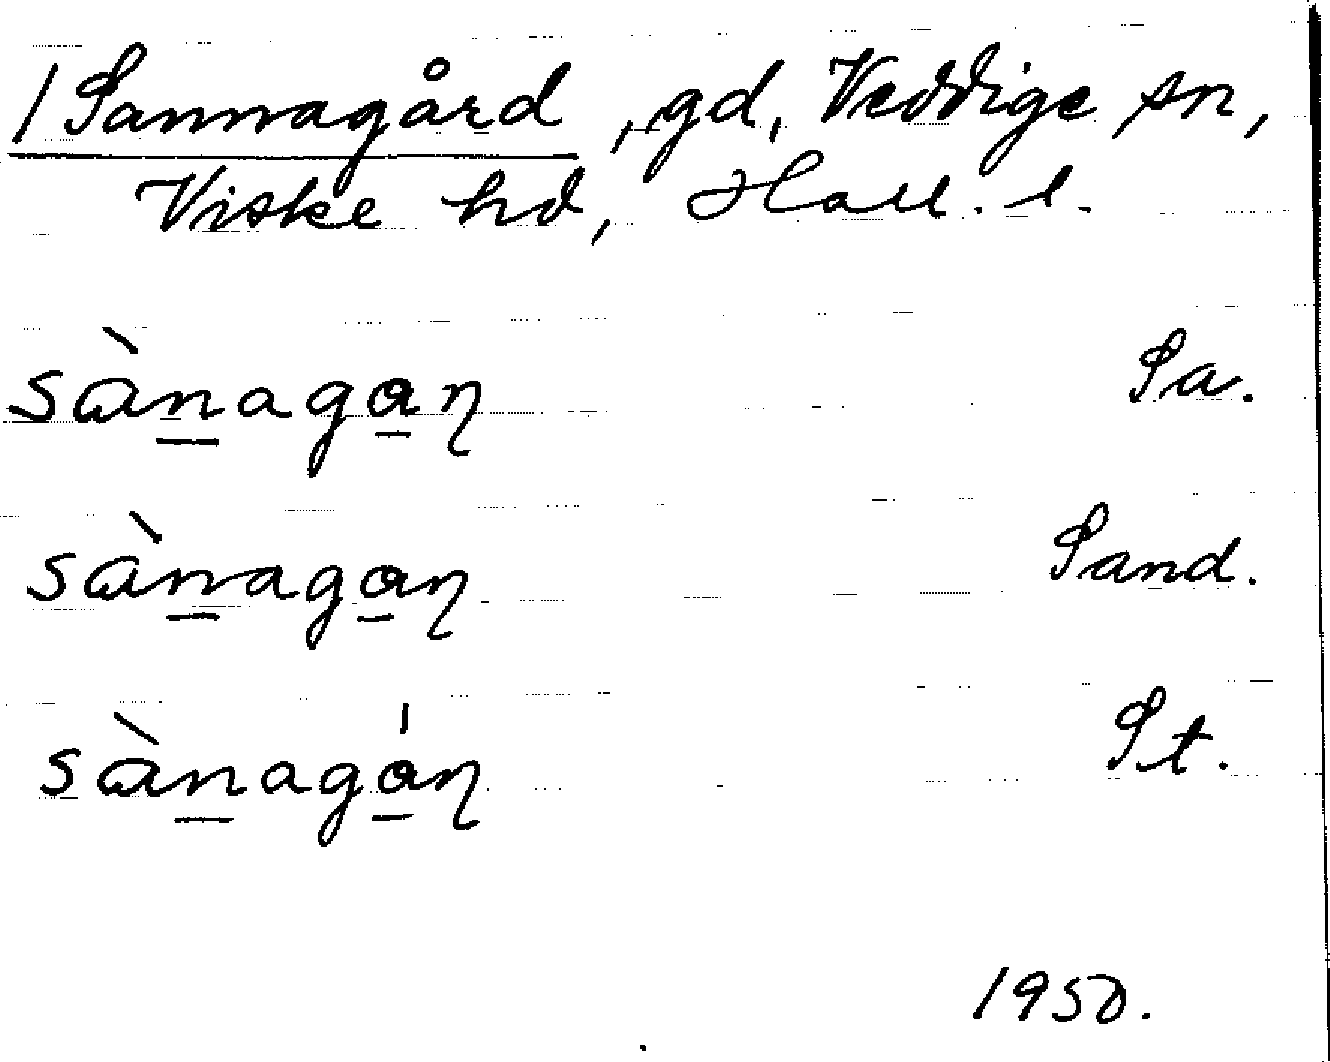 / Sannagård, gd, Veddige sn,
Viske hd, Hall. l.
sɑ̀n̲agɑ̲ɳ Sa.
sɑ̀n̲agɑ̲ɳ Sand.
sɑ̀n̲agɑ̲́ɳ St.
1950.